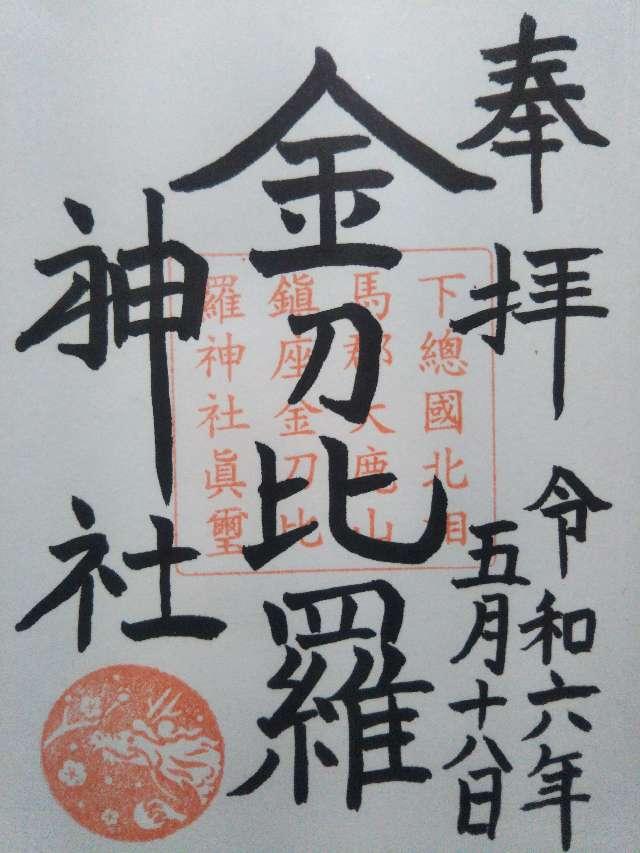 奉拝
令和六年
五月十八日
金刀比羅
神社
下總國北相
馬郡大鹿山
鎮座金刀比
羅神社眞璽